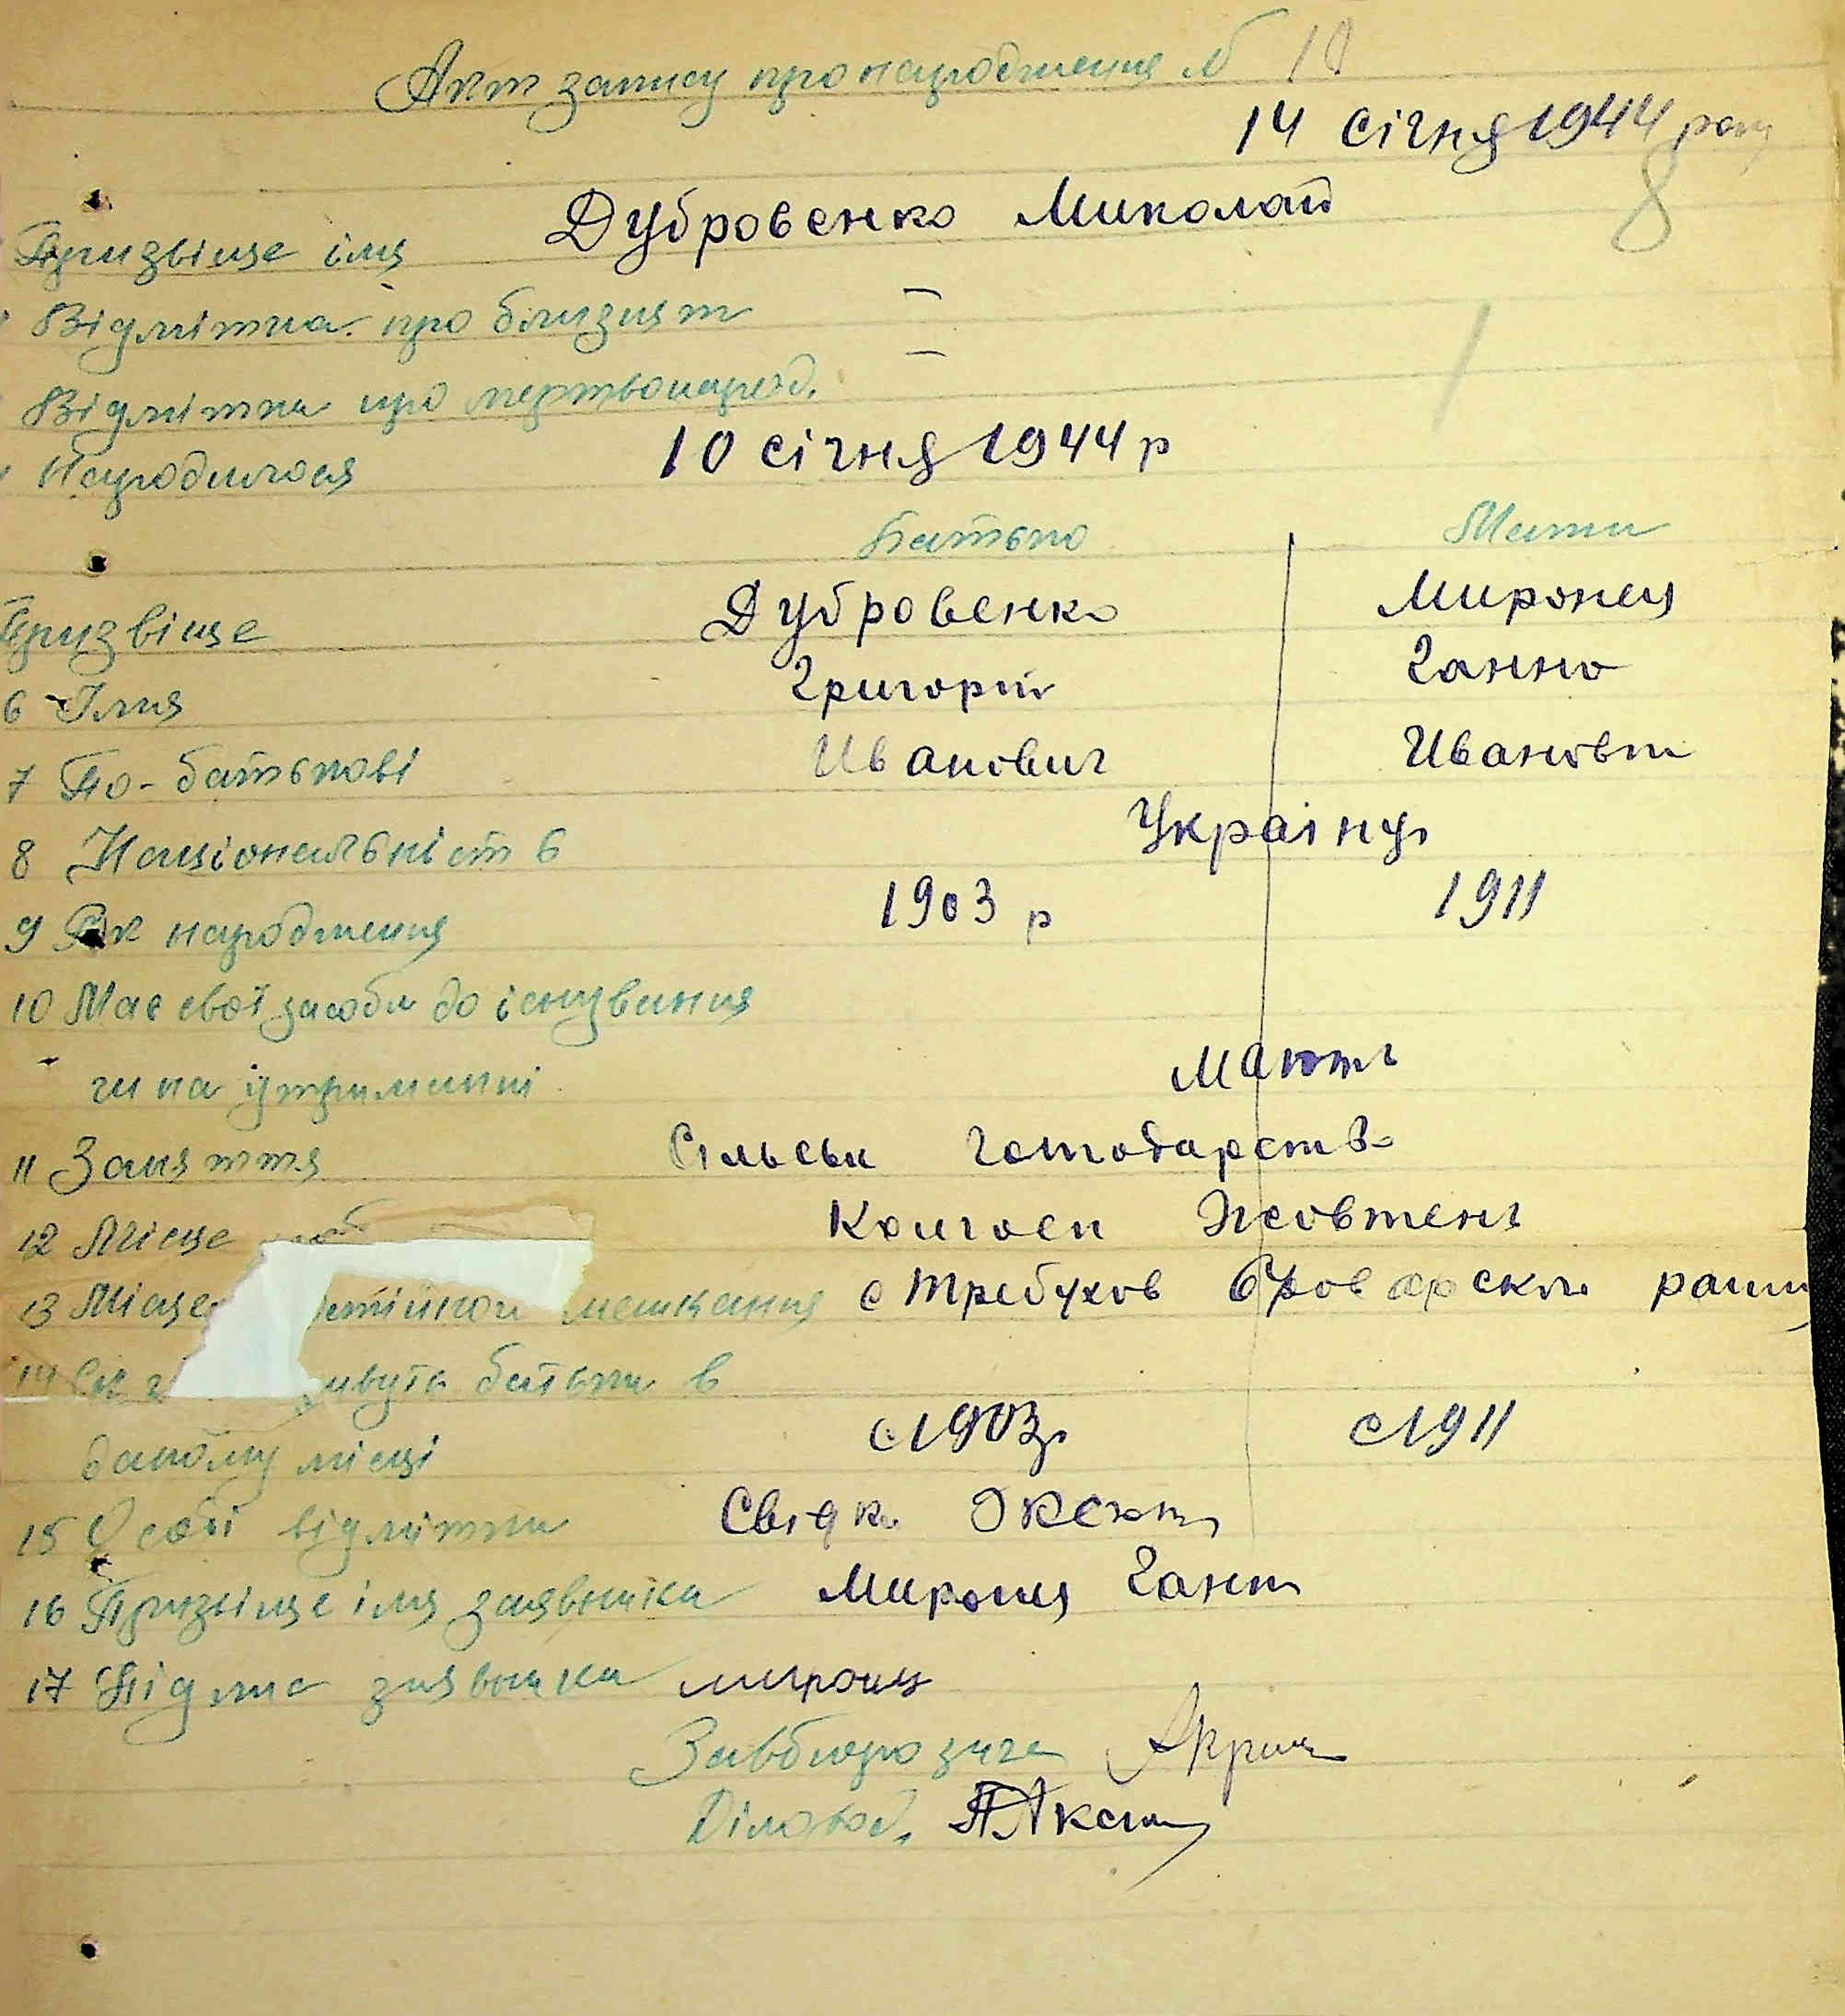 Акт запису про народження № 10
14 січня 1944 року
8
Призвіще імя Дубровенко Миколай
Відмітка про близнят –
Відмітка про мертвонарод. –
Народилося 10 січня 1944 р
Батько Мати
Призвіще Дубровенко Миронец
6 Імя Григорій Ганна
7 По-батькові Иванович Ивановна
8 Національність Українці
9 Рік народження 1903 р 1911
10 Має свої засоби до існування
чи на утриманні Мають
11 Заняття Сільськ господарство
12 Місце Колгосп Жовтень
13 Місце мешкання с Требухов Броварского
14 батьки в
даному місці с 1903 с 1911
15 Особі відмітки Свідки
16 Призвіще імя заявника Миронец Ганна
17 Підпис заявника миронец
Завбюро загс
Діловод.